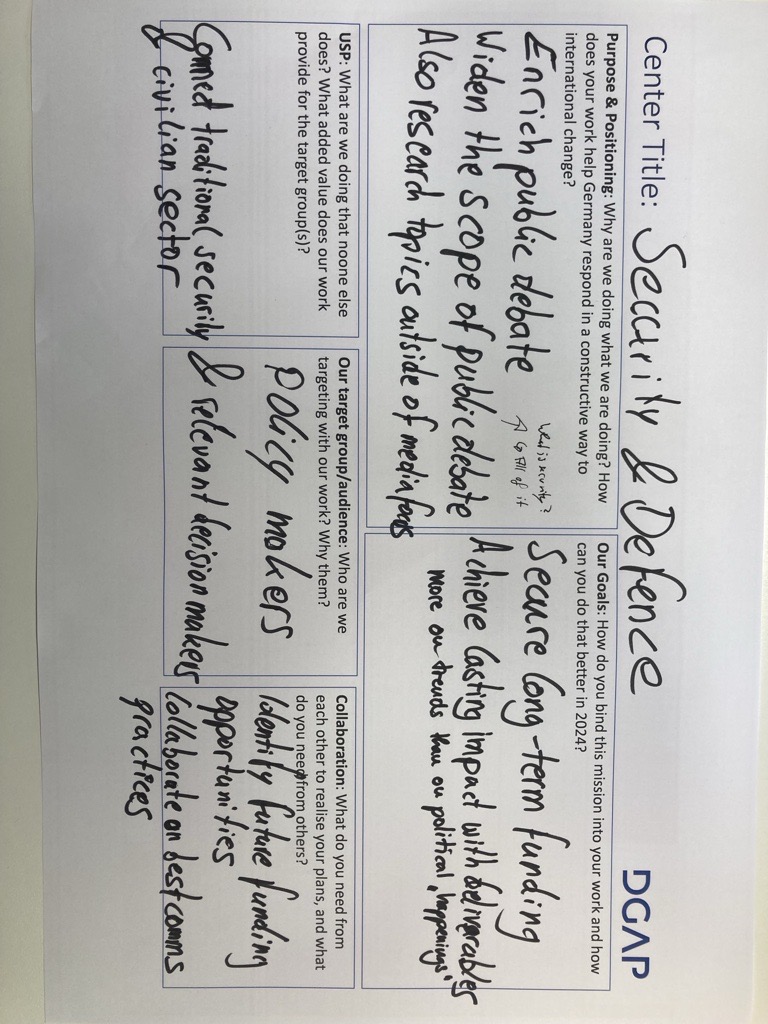 Center Title: Security & Defence
DGAP
Purpose & Positioning: Why are we doing what we are doing? How
does your work help Germany respond in a constructive way to
international change?
Enrich public debate
what is security?
↗ ↳ All of it
Widen the scope of public debate
Also research topics outside of media focus
Our Goals: How do you bind this mission into your work and how
can you do that better in 2024?
Secure long-term funding
Achieve lasting impact with deliverables
more on trends than on political "happenings"
USP: What are we doing that noone else
does? What added value does our work
provide for the target group(s)?
traditional security
& civilian sector
Our target group/audience: Who are we
targeting with our work? Why them?
Policy makers
& relevant decision makers
Collaboration: What do you need from
each other to realise your plans, and what
do you need from others?
Identify future funding
opportunities
Collaborate on best comms
practices